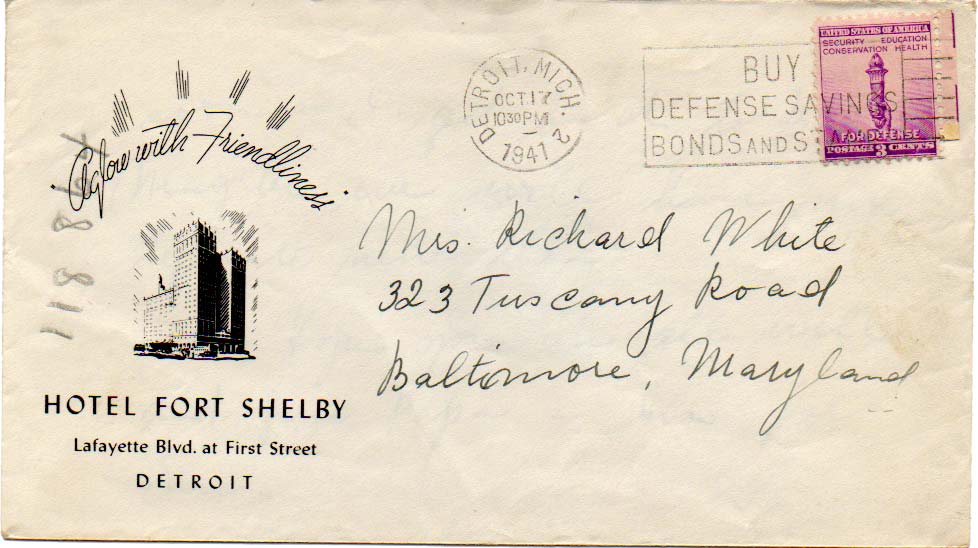 Aglow with Friendliness
HOTEL FORT SHELBY
Lafayette Blvd. at First Street
DETROIT
DETROIT, MICH. 2
OCT 17
1030 PM
1941
BUY
DEFENSE SAVINGS
BONDS AND ST
UNITED STATES OF AMERICA
SECURITY EDUCATION
CONSERVATION HEALTH
FOR DEFENSE
POSTAGE 3 CENTS
Mrs. Richard White
323 Tuscany Road
Baltimore, Maryland